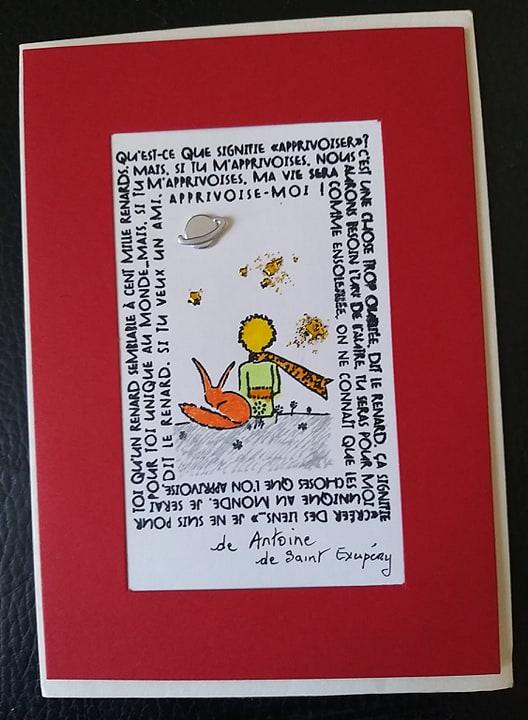 QU'EST-CE QUE SIGNIFIE «APPRIVOISER»?
C'EST UNE CHOSE TROP OUBLIÉE, DIT LE RENARD. ÇA SIGNIFIE
«CRÉER DES LIENS»... JE NE SUIS POUR
TOI QU'UN RENARD SEMBLABLE À CENT MILLE RENARDS.
MAIS, SI TU M'APPRIVOISES, NOUS
AURONS BESOIN L'UN DE L'AUTRE. TU SERAS POUR MOI
UNIQUE AU MONDE. JE SERAI
POUR TOI UNIQUE AU MONDE...MAIS, SI TU
M'APPRIVOISES, MA VIE SERA
COMME ENSOLEILLÉE. ON NE CONNAÎT QUE LES
CHOSES QUE L'ON APPRIVOISE
DIT LE RENARD. SI TU VEUX UN AMI,
APPRIVOISE-MOI !
de Antoine
de Saint Exupéry